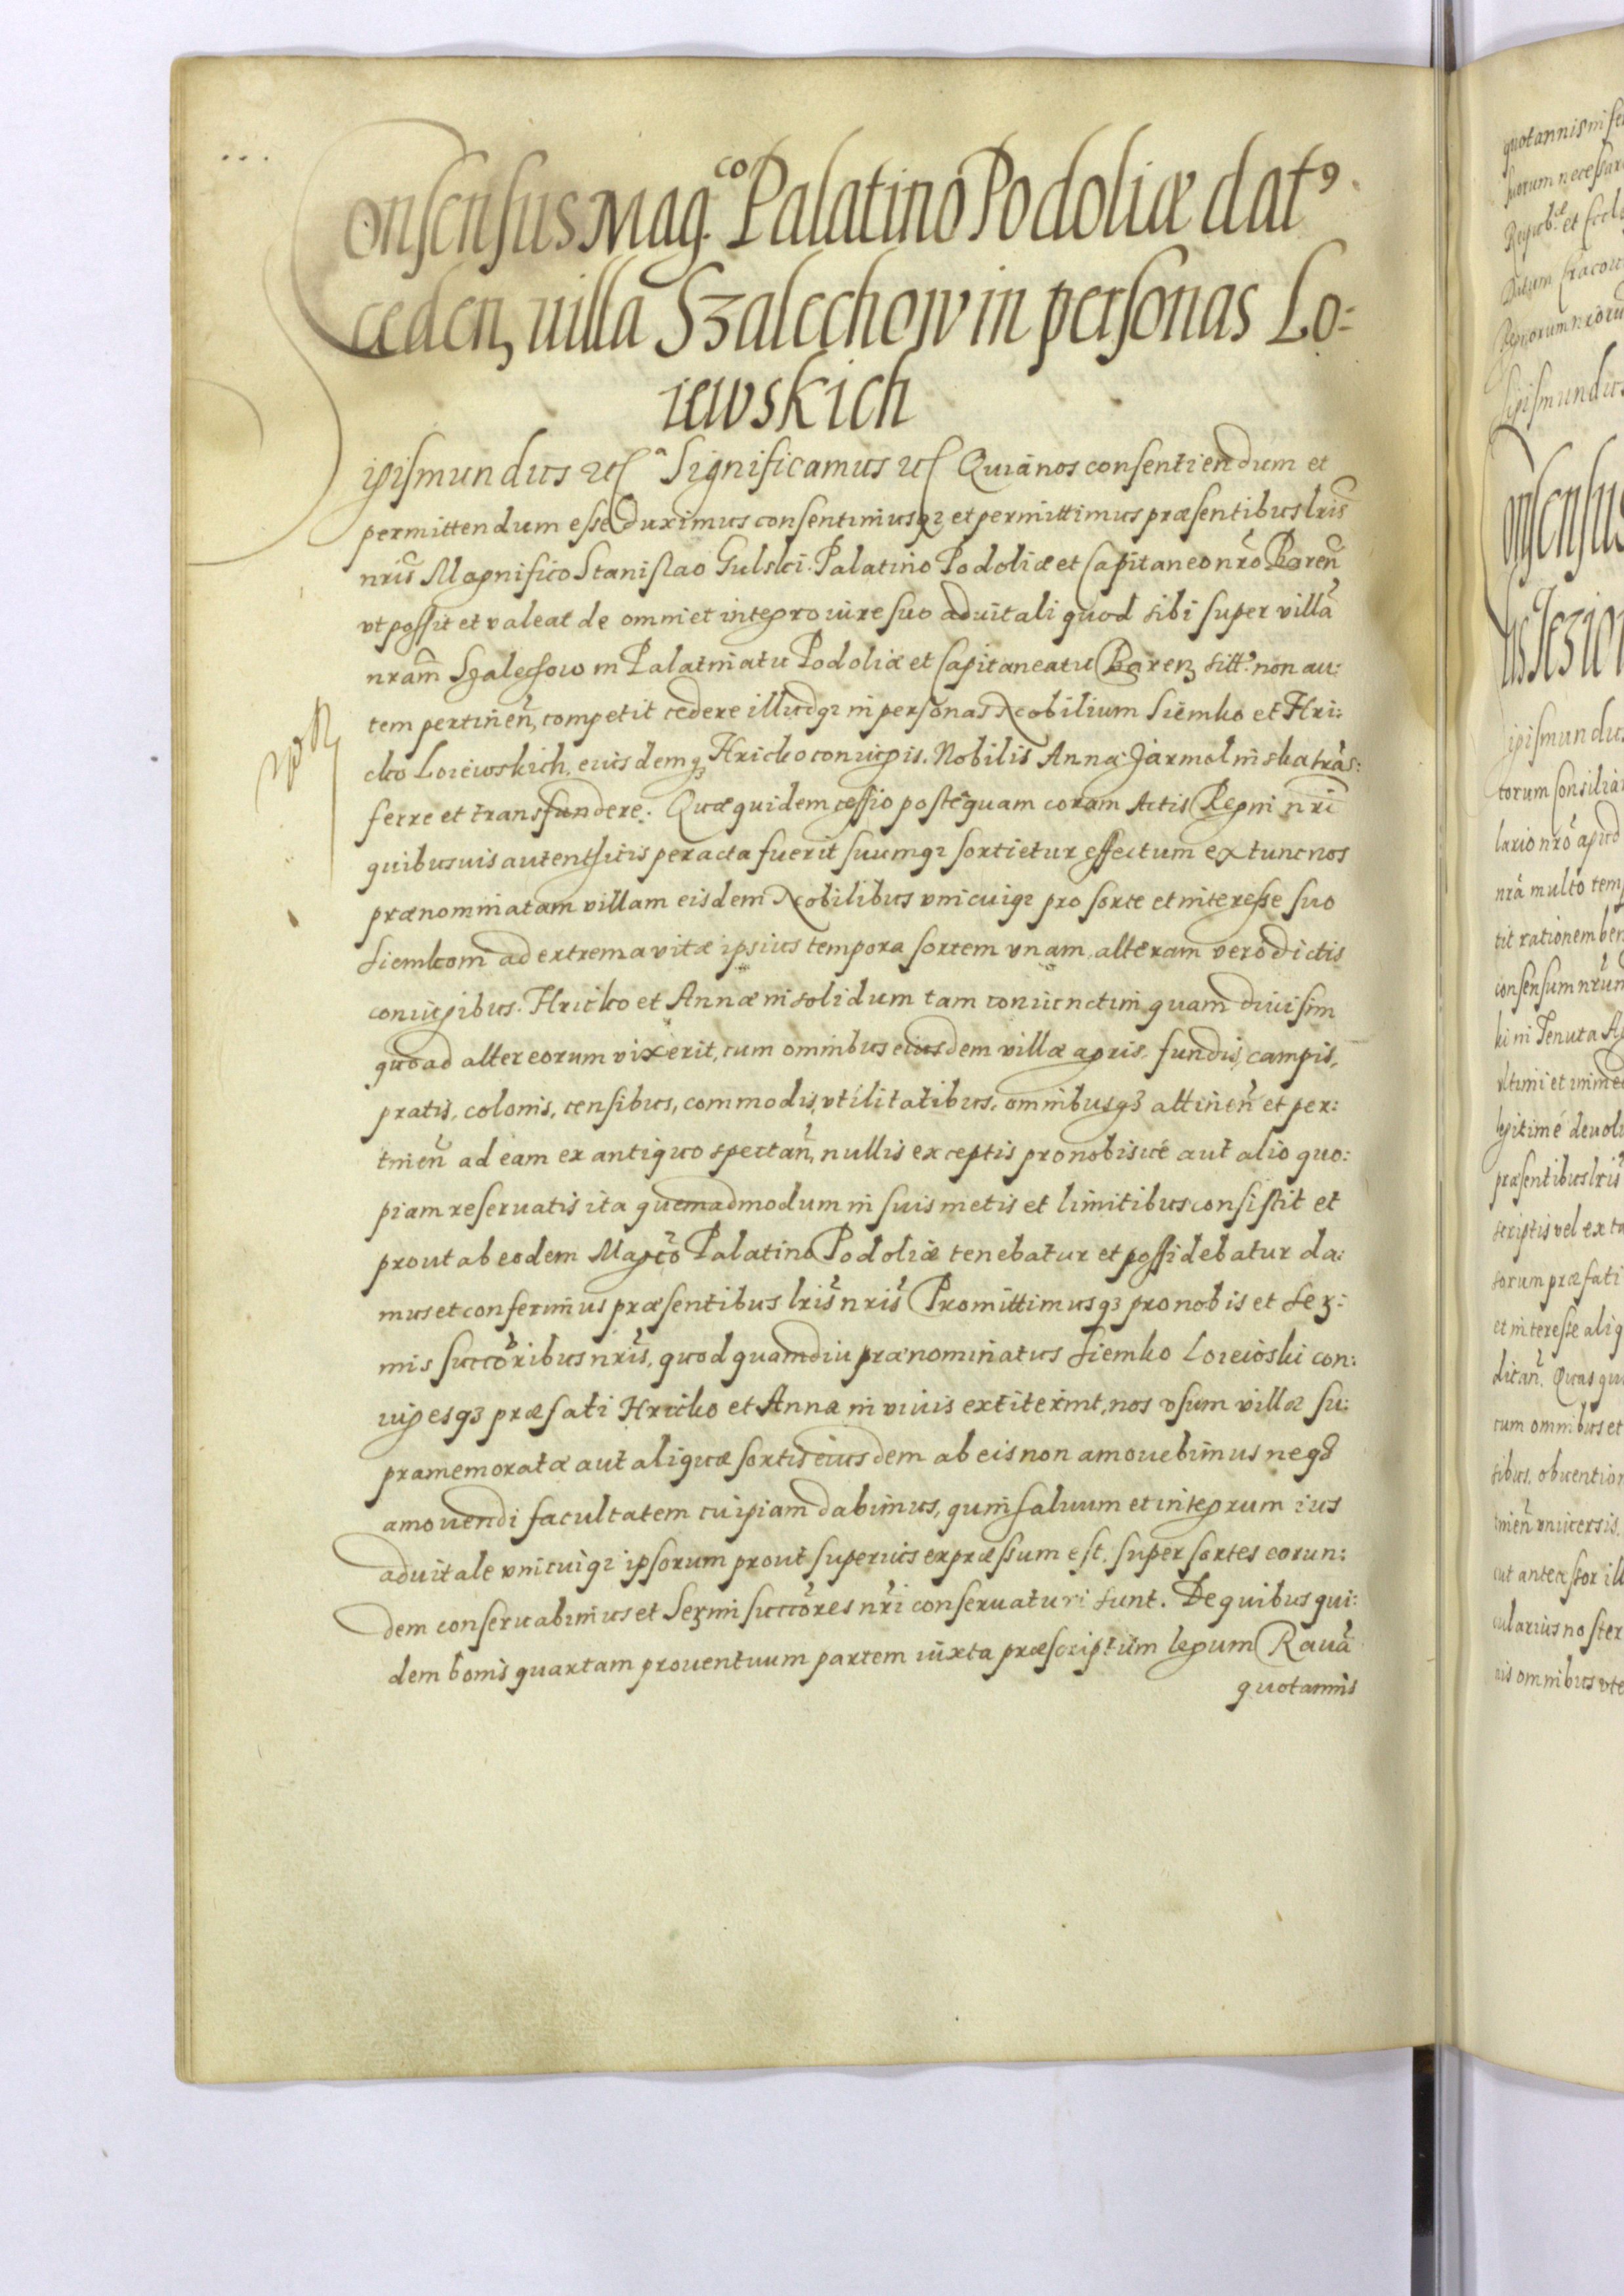 Consensus Mag.co Palatino Podoliæ dat9
ceden, uilla Szalechow in personas Lo:
iewskich
igismundus etc Significamus etc Quia nos consentiendum et
permittendum esse duximus consentimusq3 et permittimus præsentibus lris
nris Magnifico Stanislao Gulski Palatino Podoliæ et Capitaneo nro Baren
vt possit et valeat de omni et integro iure suo aduitali quod sibi super villa
nram Szalechow in Palatinatu Podoliæ et Capitaneatu Baren sitt. non au:
tem pertinen, competit cedere illudq3 in personas Nobilium Siemko et Hri:
cko Loiewskich, eiusdemq3 Hricko coniugis. Nobilis Anna Jarmolinska trās:
ferre et transfundere. Quæ quidem cessio postequam coram Actis Regni nri
quibusuis autenthicis peracta fuerit suumq3 sortietur effectum ex tunc nos
prænominatam villam eisdem Nobilibus vnicuiq3 pro sorte et interesse suo
Siemkom ad extrema vitæ ipsius tempora sortem vnam, alteram vero dictis
coniugibus. Hricko et Annæ in solidum tam coniunctim quam diuisim
quoad alter eorum vixerit, cum omnibus eiusdem villæ agris, fundis, campis,
pratis, colonis, censibus, commodis, vtilitatibus, omnibusq3 attinen et per:
tinen ad eam ex antiquo spectan, nullis exceptis pro nobisué aut alio quo:
piam reseruatis ita quemadmodum in suis metis et limitibus consistit et
prout ab eodem Magco Palatino Podoliæ tenebatur et possidebatur da:
mus et conferimus præsentibus lris nris Promittimusq3 pro nobis et Ser:
mis succoribus nris, quod quamdiu prænominatus Siemko Loieioski con:
iugesq3 præfati Hricko et Anna in viuis extiterint, nos vsum villæ su:
pramemoratæ aut aliquæ sortis eiusdem ab eis non amouebimus neq3
amouendi facultatem cuipiam dabimus, quin saluum et integrum ius
aduitale vnicuiq3 ipsorum prout superius expræssum est, super sortes eorun:
dem conseruabimus et Sermi succores nri conseruaturi sunt. De quibus qui:
dem bonis quartam prouentuum partem iuxta præscriptum legum Raua
quotannis